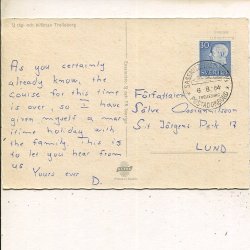 Tåg- och bilfärjan Trelleborg
30
SVERIGE
6.8.64
As you certainly
already know, the
Course for this time
is over, so I have
given myself a mari-
time holiday with
the family, this is
to let you hear from
us
Yours ever
D.
Författaren
Sölve Ossiannilsson
S:t Jörgens Park 17
LUND